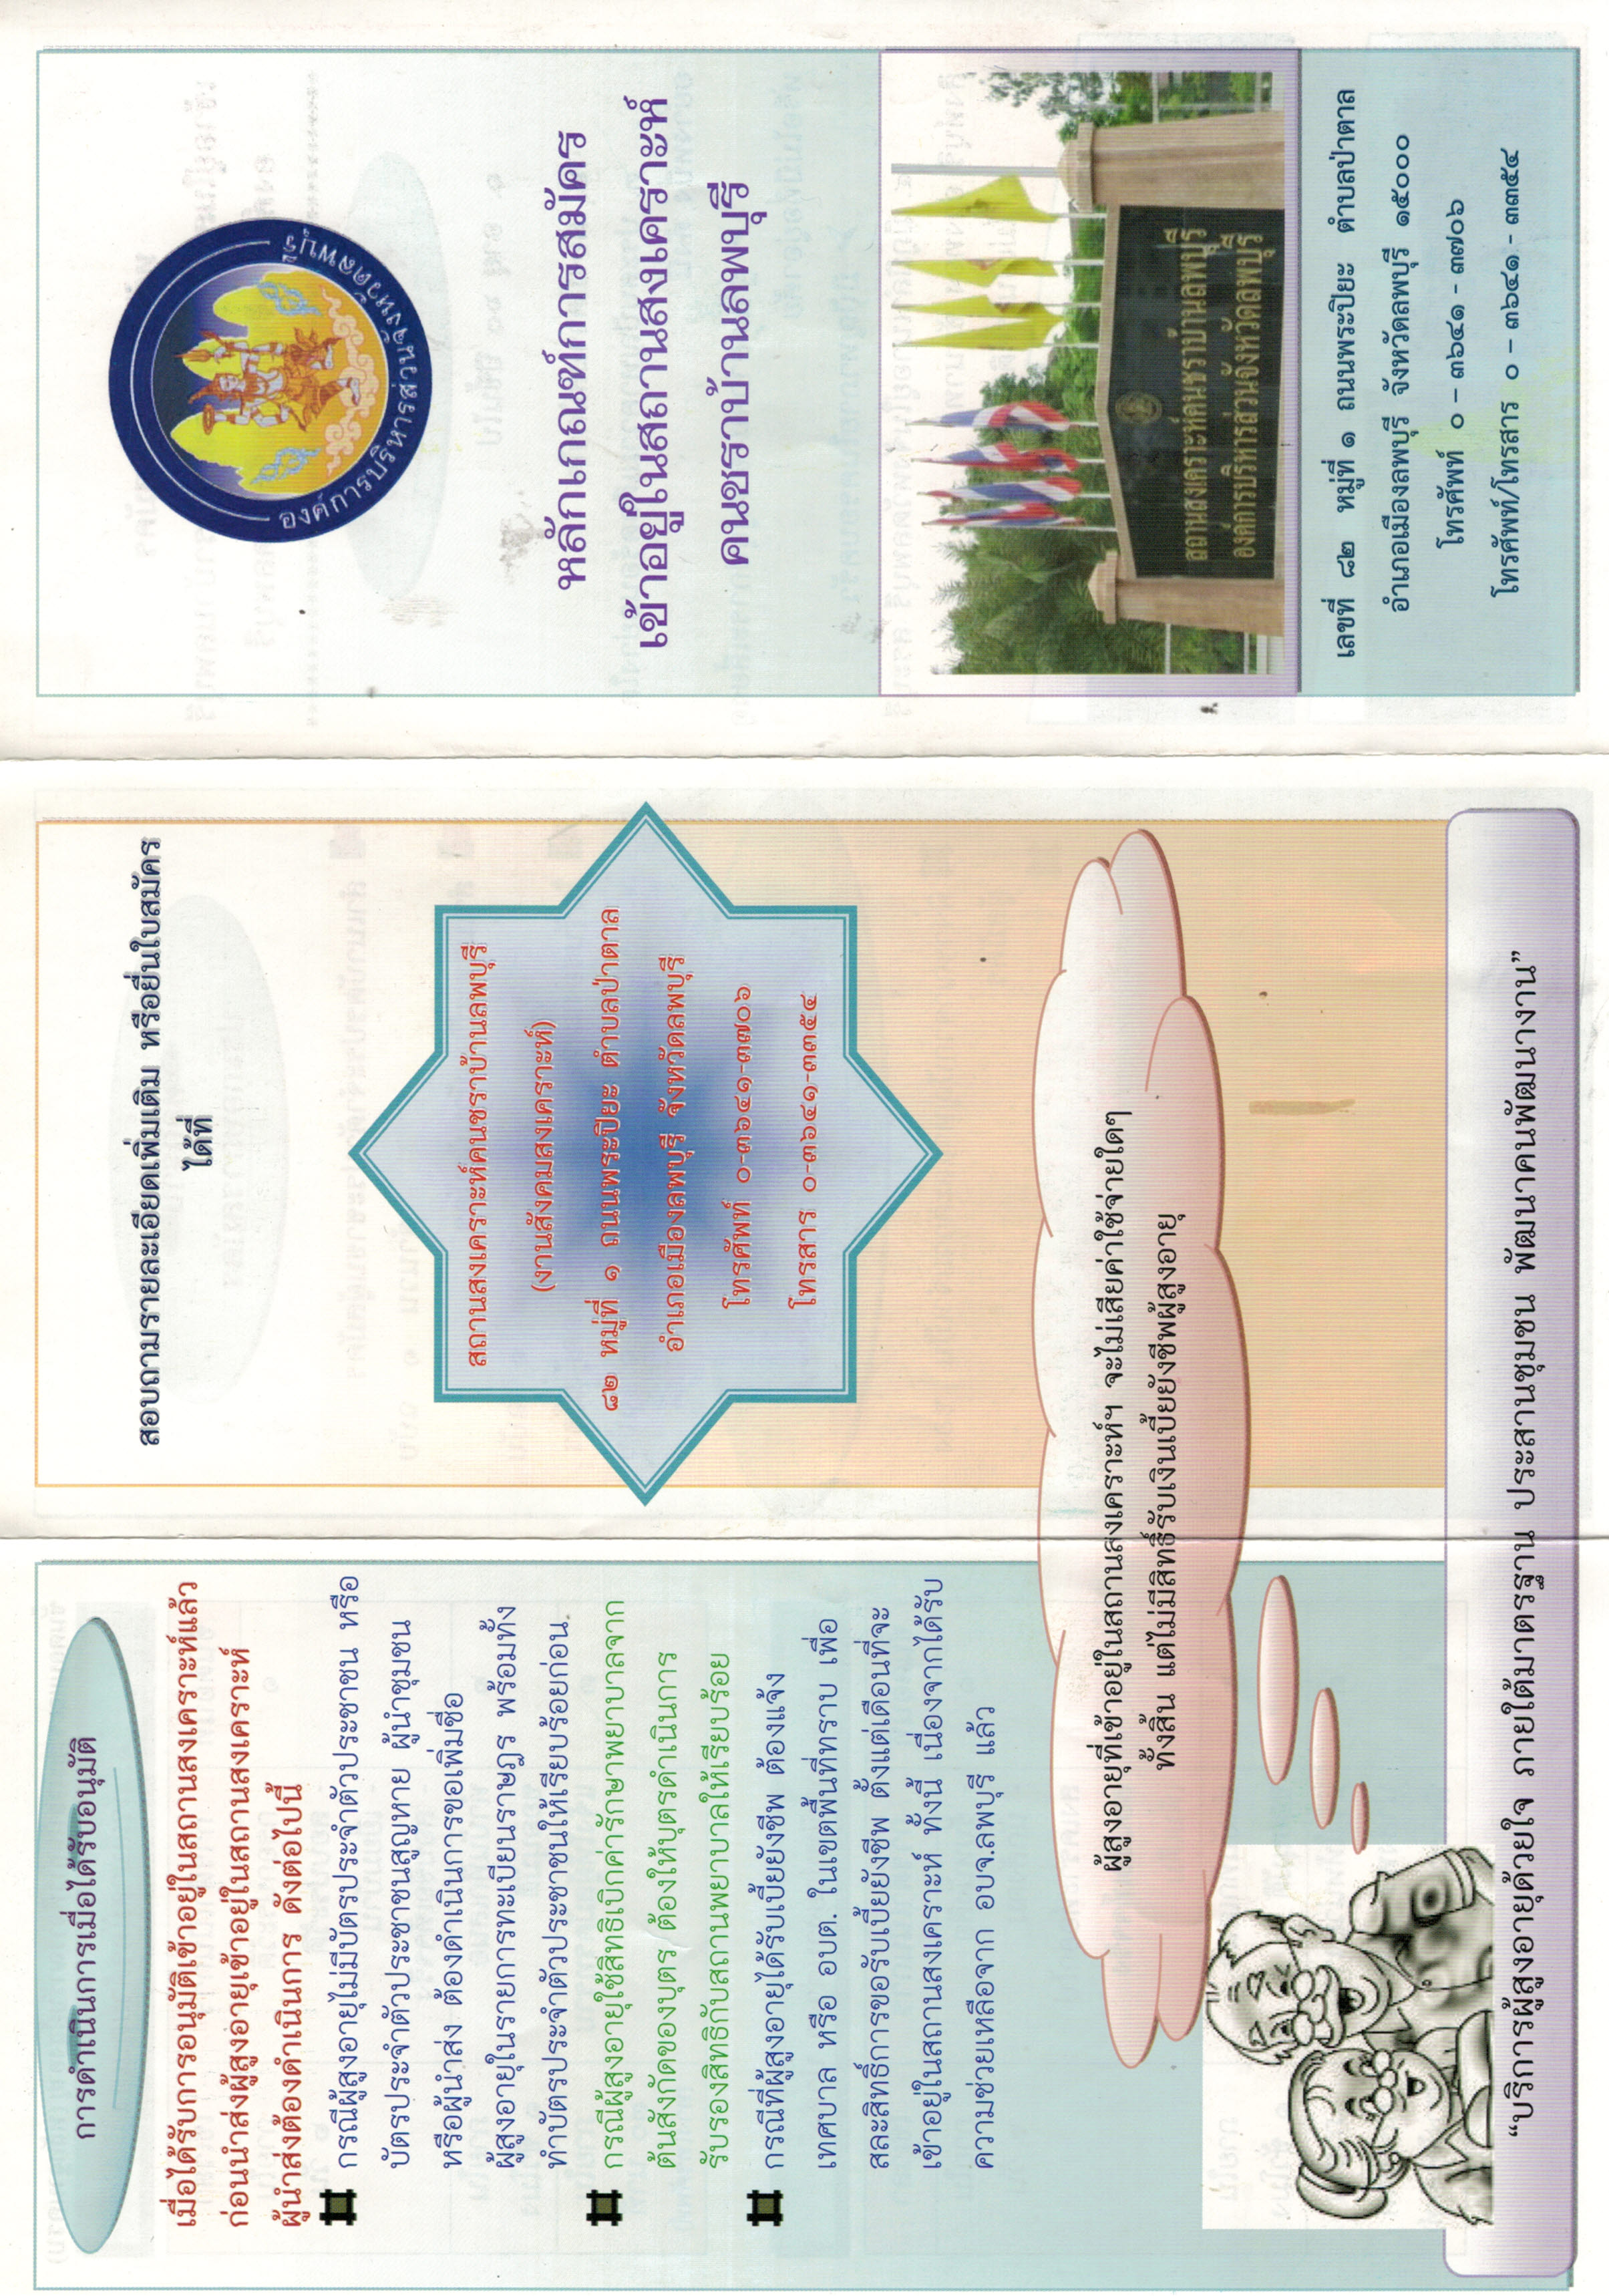 การดำเนินการเมื่อได้รับอนุมัติ
เมื่อได้รับการอนุมัติเข้าอยู่ในสถานสงเคราะห์แล้ว
ก่อนนำส่งผู้สูงอายุเข้าอยู่ในสถานสงเคราะห์
ผู้นำส่งต้องดำเนินการ ดังต่อไปนี้
กรณีผู้สูงอายุไม่มีบัตรประจำตัวประชาชน หรือ
บัตรประจำตัวประชาชนสูญหาย ผู้นำชุมชน
หรือผู้นำส่ง ต้องดำเนินการขอเพิ่มชื่อ
ผู้สูงอายุในรายการทะเบียนราษฎร พร้อมทั้ง
ทำบัตรประจำตัวประชาชนให้เรียบร้อยก่อน
กรณีผู้สูงอายุใช้สิทธิเบิกค่ารักษาพยาบาลจาก
ต้นสังกัดของบุตร ต้องให้บุตรดำเนินการ
รับรองสิทธิกับสถานพยาบาลให้เรียบร้อย
กรณีที่ผู้สูงอายุได้รับเบี้ยยังชีพ ต้องแจ้ง
เทศบาล หรือ อบต. ในเขตพื้นที่ทราบ เพื่อ
สละสิทธิ์การขอรับเบี้ยยังชีพ ตั้งแต่เดือนที่จะ
เข้าอยู่ในสถานสงเคราะห์ ทั้งนี้ เนื่องจากได้รับ
ความช่วยเหลือจาก อบจ.ลพบุรี แล้ว
สอบถามรายละเอียดเพิ่มเติม หรือยื่นใบสมัคร
ได้ที่
สถานสงเคราะห์คนชราบ้านลพบุรี
(งานสังคมสงเคราะห์)
๘๒ หมู่ที่ ๑ ถนนพระปิยะ ตำบลป่าตาล
อำเภอเมืองลพบุรี จังหวัดลพบุรี
โทรศัพท์ ๐-๓๖๔๑-๓๗๐๖
โทรสาร ๐-๓๖๔๑-๓๓๕๔
ผู้สูงอายุที่เข้าอยู่ในสถานสงเคราะห์ฯ จะไม่เสียค่าใช้จ่ายใดๆ
ทั้งสิ้น แต่ไม่มีสิทธิ์รับเงินเบี้ยยังชีพผู้สูงอายุ
“บริการผู้สูงอายุด้วยใจ ภายใต้มาตรฐาน ประสานชุมชน พัฒนาคนพัฒนางาน”
องค์การบริหารส่วนจังหวัดลพบุรี
หลักเกณฑ์การสมัคร
เข้าอยู่ในสถานสงเคราะห์
คนชราบ้านลพบุรี
สถานสงเคราะห์คนชราบ้านลพบุรี
องค์การบริหารส่วนจังหวัดลพบุรี
เลขที่ ๘๒ หมู่ที่ ๑ ถนนพระปิยะ ตำบลป่าตาล
อำเภอเมืองลพบุรี จังหวัดลพบุรี ๑๕๐๐๐
โทรศัพท์ ๐ – ๓๖๔๑ - ๓๗๐๖
โทรศัพท์/โทรสาร ๐ – ๓๖๔๑ - ๓๓๕๔